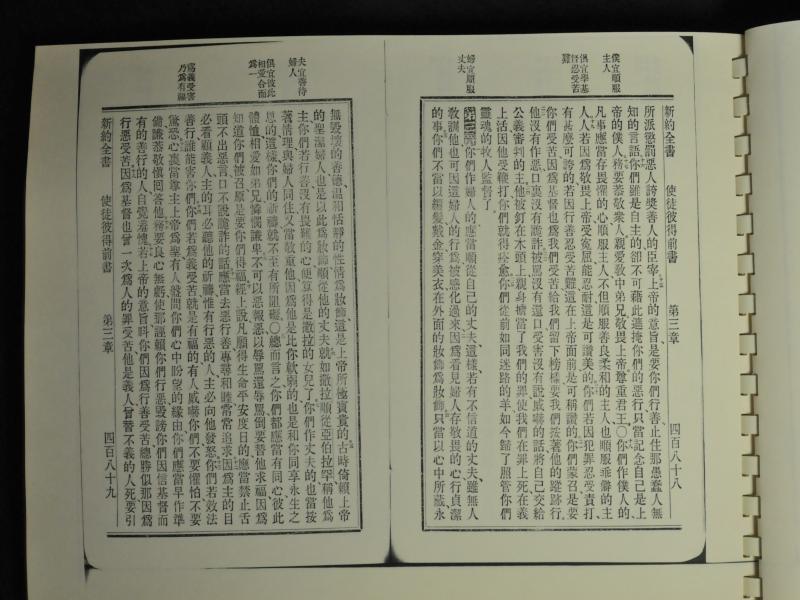 僕宜順服
主人
俱宜學基
督忍受苦
難
婦宜順服
丈夫
新約全書 使徒彼得前書 第三章 四百八十八
所派懲罰惡人誇獎善人的臣宰上帝的意旨是要你們行善止住那愚蠢人無
知的言語你們雖是自主的卻不可藉此遮掩你們的惡行只當記念自己是上
帝的僕人務要恭敬衆人親愛教中弟兄敬畏上帝尊重君王〇你們作僕人的
凡事應當存畏懼的心順服主人不但順服善良柔和的主人也順服乖僻的主
人人若因爲敬畏上帝受寃屈能忍耐這是可讚美的你們若因犯罪忍受責打
有甚麽可誇的若因行善忍受苦難這在上帝面前是可稱讚的你們蒙召是要
你們受苦因爲基督也爲我們受苦給我們留下榜樣要我們按著他的蹤跡行
他沒有作惡口裏沒有詭詐被罵沒有還口受害沒有說威嚇的話將自己交給
公義審判的主他被釘在木頭上親身擔當了我們的罪使我們在罪上死在義
上活因他受鞭打你們就得痊愈你們從前如同迷路的羊如今歸了照管你們
靈魂的牧人監督了
第三章你們作婦人的應當順從自己的丈夫這樣若有不信道的丈夫雖無人
敎訓他也可因這婦人的行爲被感化過來因爲看見婦人存敬畏的心行貞潔
的事你們不當以編髮戴金穿美衣在外面的妝飾爲妝飾只當以心中所藏永
夫宜善待
婦人
俱宜彼此
相愛合而
爲一
爲義受害
乃爲有福
無毀壞的善德溫和恬靜的性情爲妝飾這是上帝所極寶貴的古時倚賴上帝
的聖潔婦人也是以此爲妝飾順從他的丈夫就如撒拉順從亞伯拉罕稱他爲
主你們若行善沒有畏懼的心便算得是撒拉的女兒了你們作丈夫的也當按
著情理與婦人同住又當敬重他因爲他是比你軟弱的也是和你同享永生之
恩的這樣你們的祈禱就不至有所阻礙〇總而言之你們都應當有同心彼此
體恤相愛如弟兄憐憫謙卑不可以惡報惡以辱罵還辱罵倒要替他求福因爲
知道你們被召原是要你們得福經上說凡願得生命平安度日的應當禁止舌
頭不出惡言口不說詭詐的話應當去惡行善專尋和睦常常追求因爲主的目
必看顧義人主的耳必聽他的祈禱惟有行惡的人主必向他發怒你們若效法
善行誰能害你們你們若爲義受苦就是有福的有人威嚇你們不要懼怕不要
驚恐心裏當尊主上帝爲聖有人盤問你們心中盼望的緣由你們應當早作準
備謙恭敬愼回答他務要良心無虧使那誣賴你們行惡毀謗你們因信基督而
有的善行的人自覺羞愧若上帝的意旨呌你們因爲行善受苦總勝似那因爲
行惡受苦因爲基督也曾一次爲人的罪受苦他是義人曾替不義的人死要引
新約全書 使徒彼得前書 第三章 四百八十九